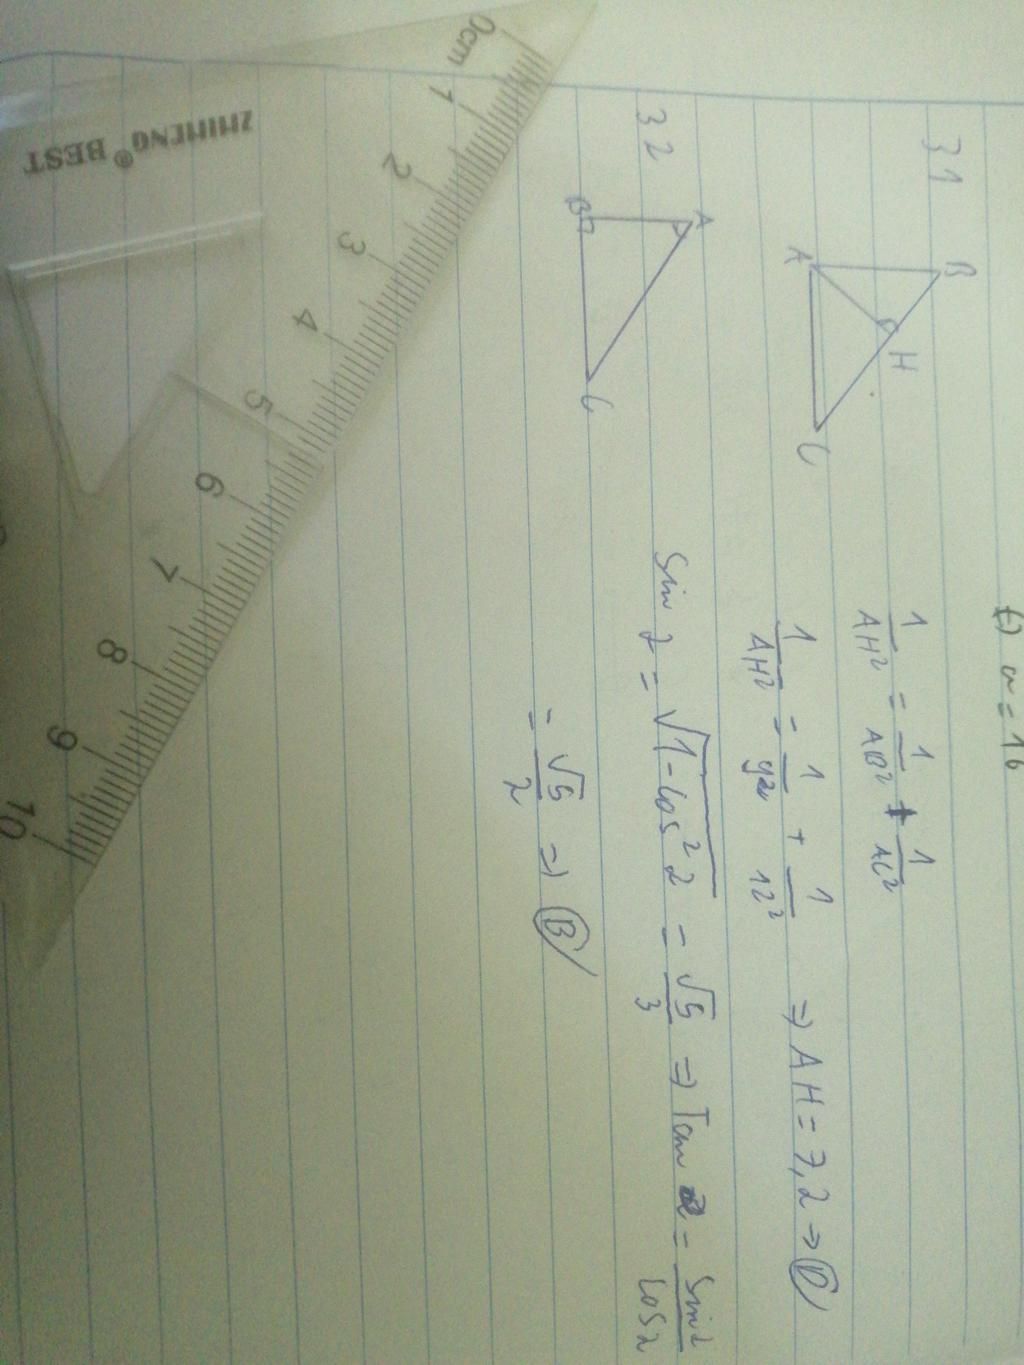 t) a = 16
31
B
A
H
C
1/AH² = 1/AB² + 1/AC²
1/AH² = 1/9² + 1/12² => AH = 7,2 => D
32
A
B
C
Sin 2 = √1 - cos² 2 = √5/3 => Tan 2 = Sin 2/cos 2
= √5/2 => B
0cm 1 2 3 4 5 6 7 8 9 10
ZHIMENG® BEST